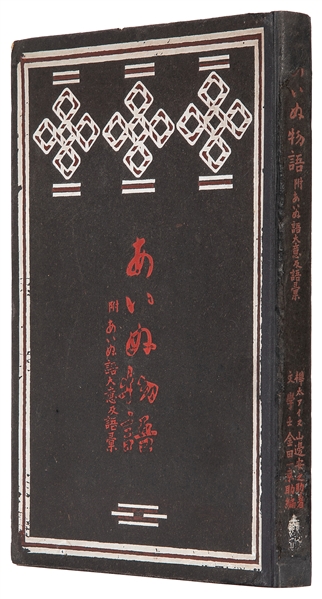 あいぬ物語
附あいぬ語大意及語彙
あいぬ物語 附あいぬ語大意及語彙
樺太アイヌ山邊安之助著
文學士金田一京助編